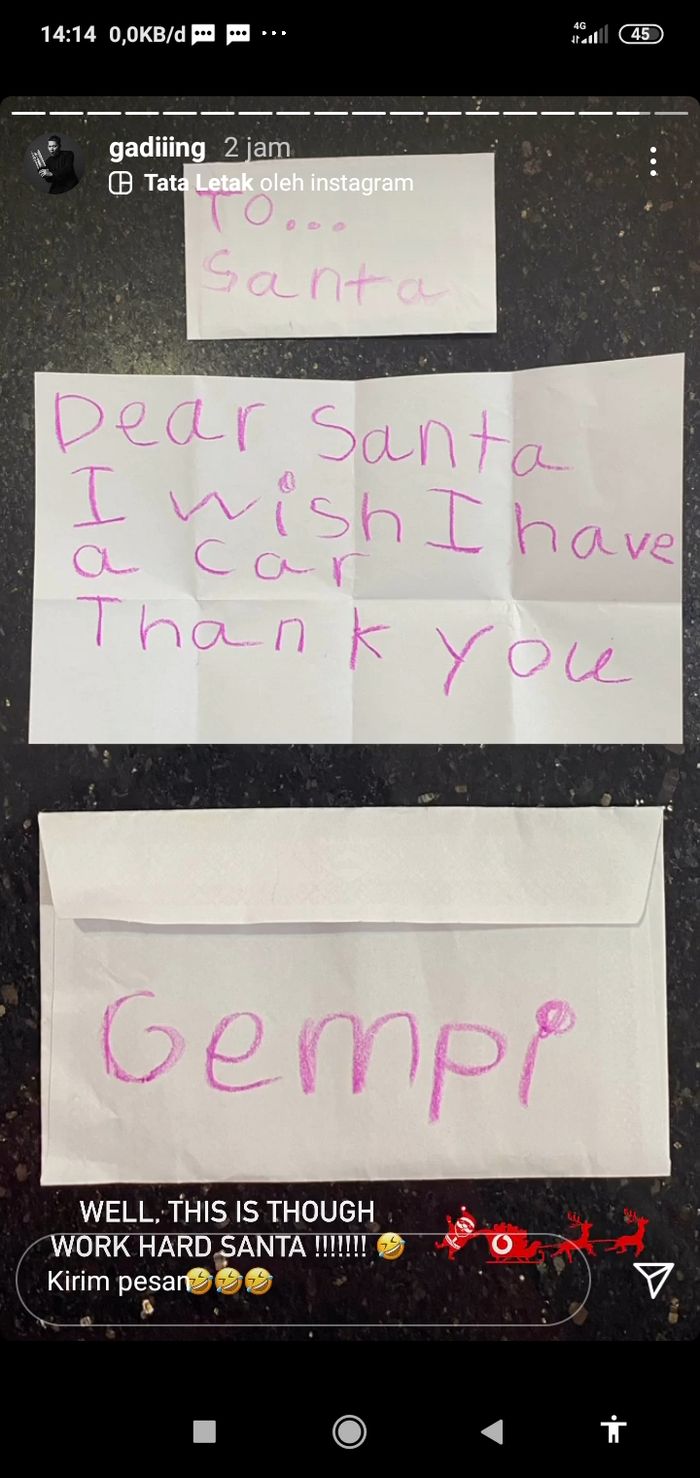 14:14 0,0KB/d
4G
45
gadiiing 2 jam
Tata Letak oleh instagram
To...
Santa
Dear Santa
I wish I have
a car
Thank you
Gempi
WELL, THIS IS THOUGH
WORK HARD SANTA !!!!!!! 🤣
Kirim pesan🤣🤣🤣